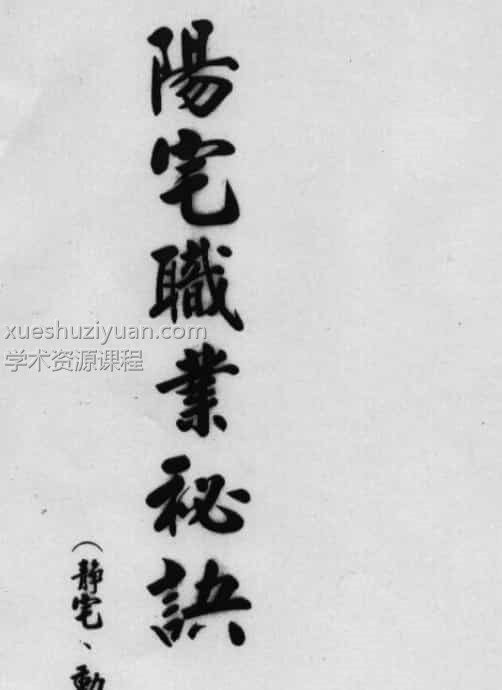 陽宅職業秘訣
(靜宅、動
xueshuziyuan.com
学术资源课程